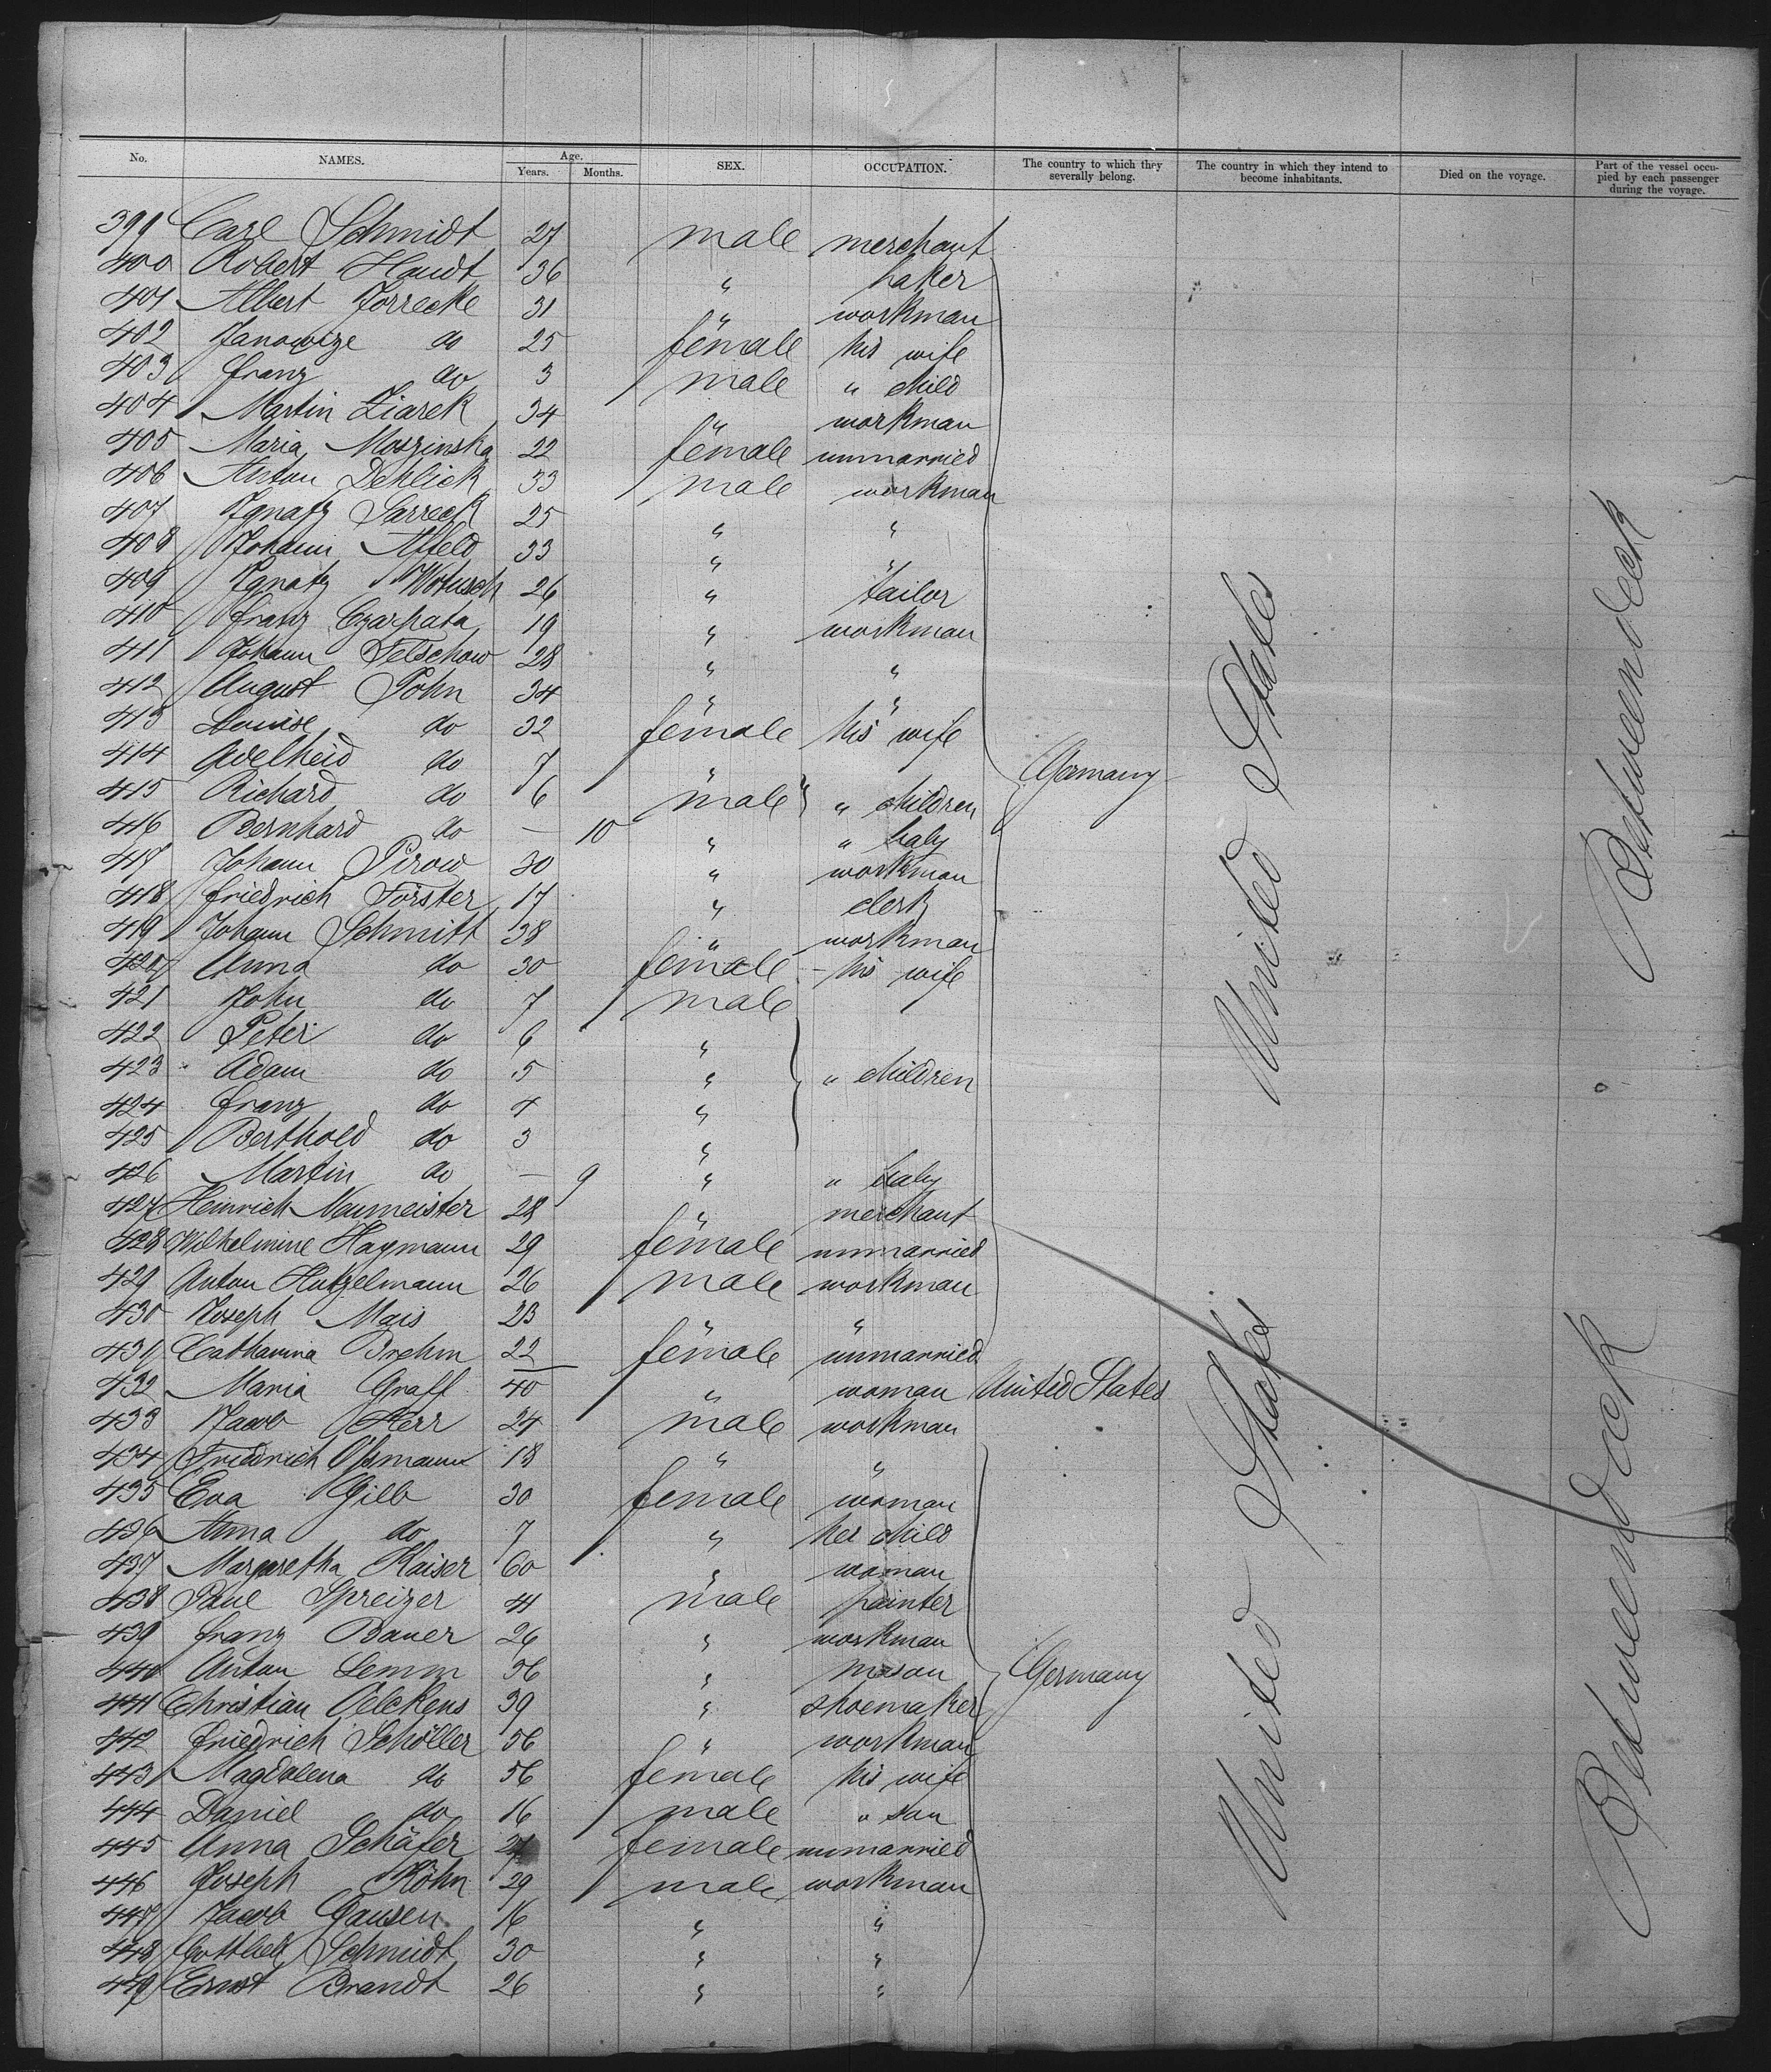 No. NAMES. Age. Years. Months. SEX. OCCUPATION. The country to which they severally belong. The country in which they intend to become inhabitants. Died on the voyage. Part of the vessel occupied by each passenger during the voyage.
399 Carl Schmidt 27 male merchant
400 Robert Haudt 36 " baker
401 Albert Jorrecke 31 " workman
402 do 25 female his wife
403 Franz do 3 male " child
404 Martin Ziarek 34 " workman
405 Maria Moszinska 22 female unmarried
406 Anton Dehlick 33 male workman
407 Ignatz Sarreck 25 " "
408 Johann Affeld 33 " "
409 Ignatz 26 " tailor
410 Franz Czarpata 19 " workman
411 Johann Felschow 28 " "
412 August Pohn 34 " "
413 Louise do 32 female his wife
414 Adelheid do 7 " Germany United States Betweendeck
415 Richard do 6 male " children
416 Bernhard do — 10 " " baby
417 Johann Pirow 30 " workman
418 Friedrich Förster 17 " clerk
419 Johann Schmitt 38 " workman
420 Anna do 30 female his wife
421 John do 7 male
422 Peter do 6 "
423 Adam do 5 " " children
424 Franz do 4 "
425 Berthold do 3 "
426 Martin do — 9 " " baby
427 Heinrich Neumeister 28 " merchant
428 Wilhelmine Hagmann 29 female unmarried
429 Anton Hutzelmann 26 male workman
430 Joseph Mais 23 " "
431 Catharina Brehm 22 female unmarried
432 Maria Graff 40 " woman United States
433 Jacob Herr 24 male workman
434 Friedrich Ossmann 18 " "
435 Eva Gilb 30 female woman
436 Anna do 7 " her child
437 Margaretha Kaiser 60 " woman
438 Paul Spreizer 41 male painter
439 Franz Bauer 26 " workman
440 Anton Lemm 56 " mason Germany United States Betweendeck
441 Christian Oelckens 39 " shoemaker
442 Friedrich Schöller 56 " workman
443 Magdalena do 56 female his wife
444 Daniel do 16 male " son
445 Anna Schäfer female unmarried
446 Joseph Köhn 29 male workman
447 Jacob Gausen 16 " "
448 Gottlieb Schmidt 30 " "
449 Ernst Brandt 26 " "